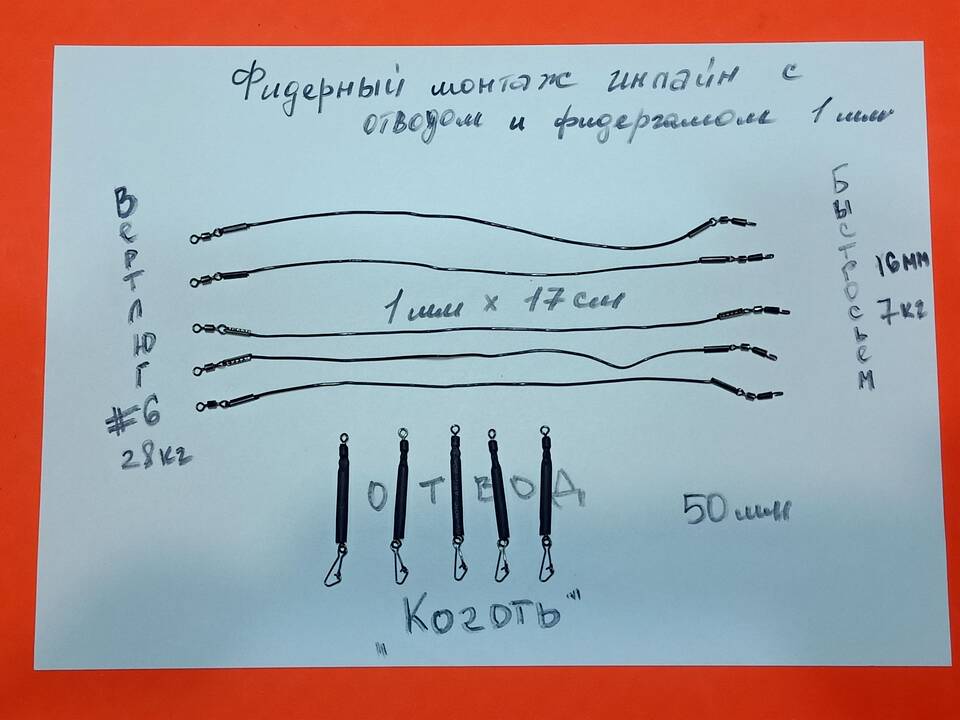 Фидерный монтаж инлайн с
отводом и фидергамом 1 мм
Вертлюг
#6
28кг
Быстросъем
16мм
7кг
1 мм x 17 см
ОТВОД
50 мм
"Коготь"